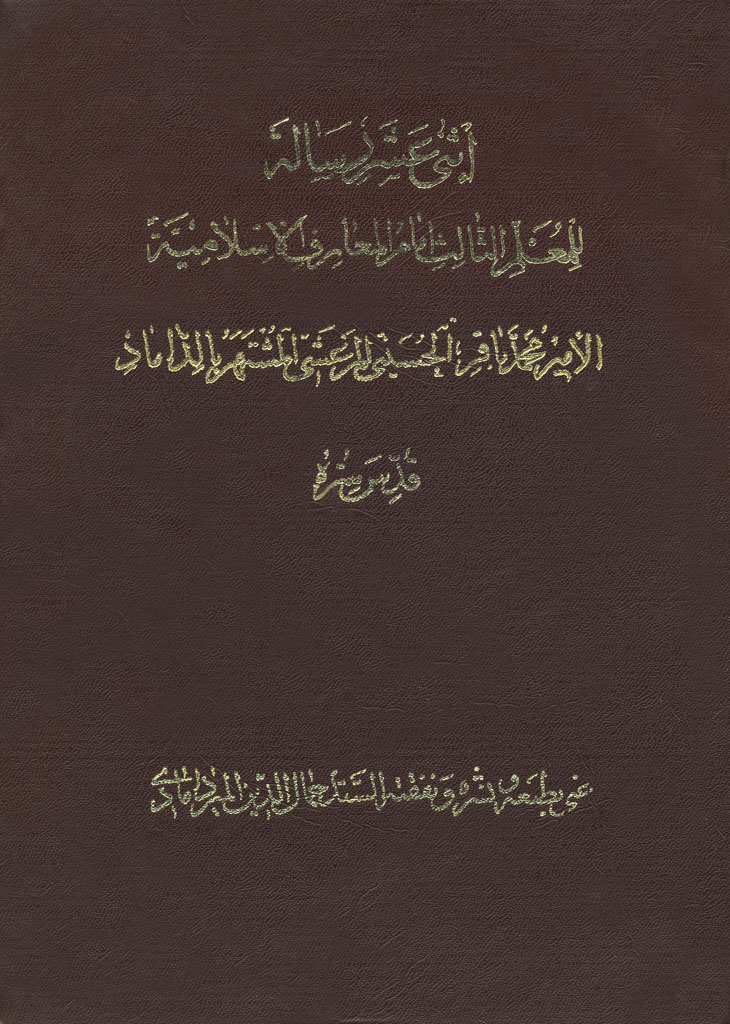 اثنى عشر رسالة
للمعلم الثالث امام المعارف الاسلامية
الامير محمد باقر الحسيني المرعشى المشتهر بالداماد
قدس سره
عنى بطبعه و نشره و نفقته السيد جمال الدين الميردامادى